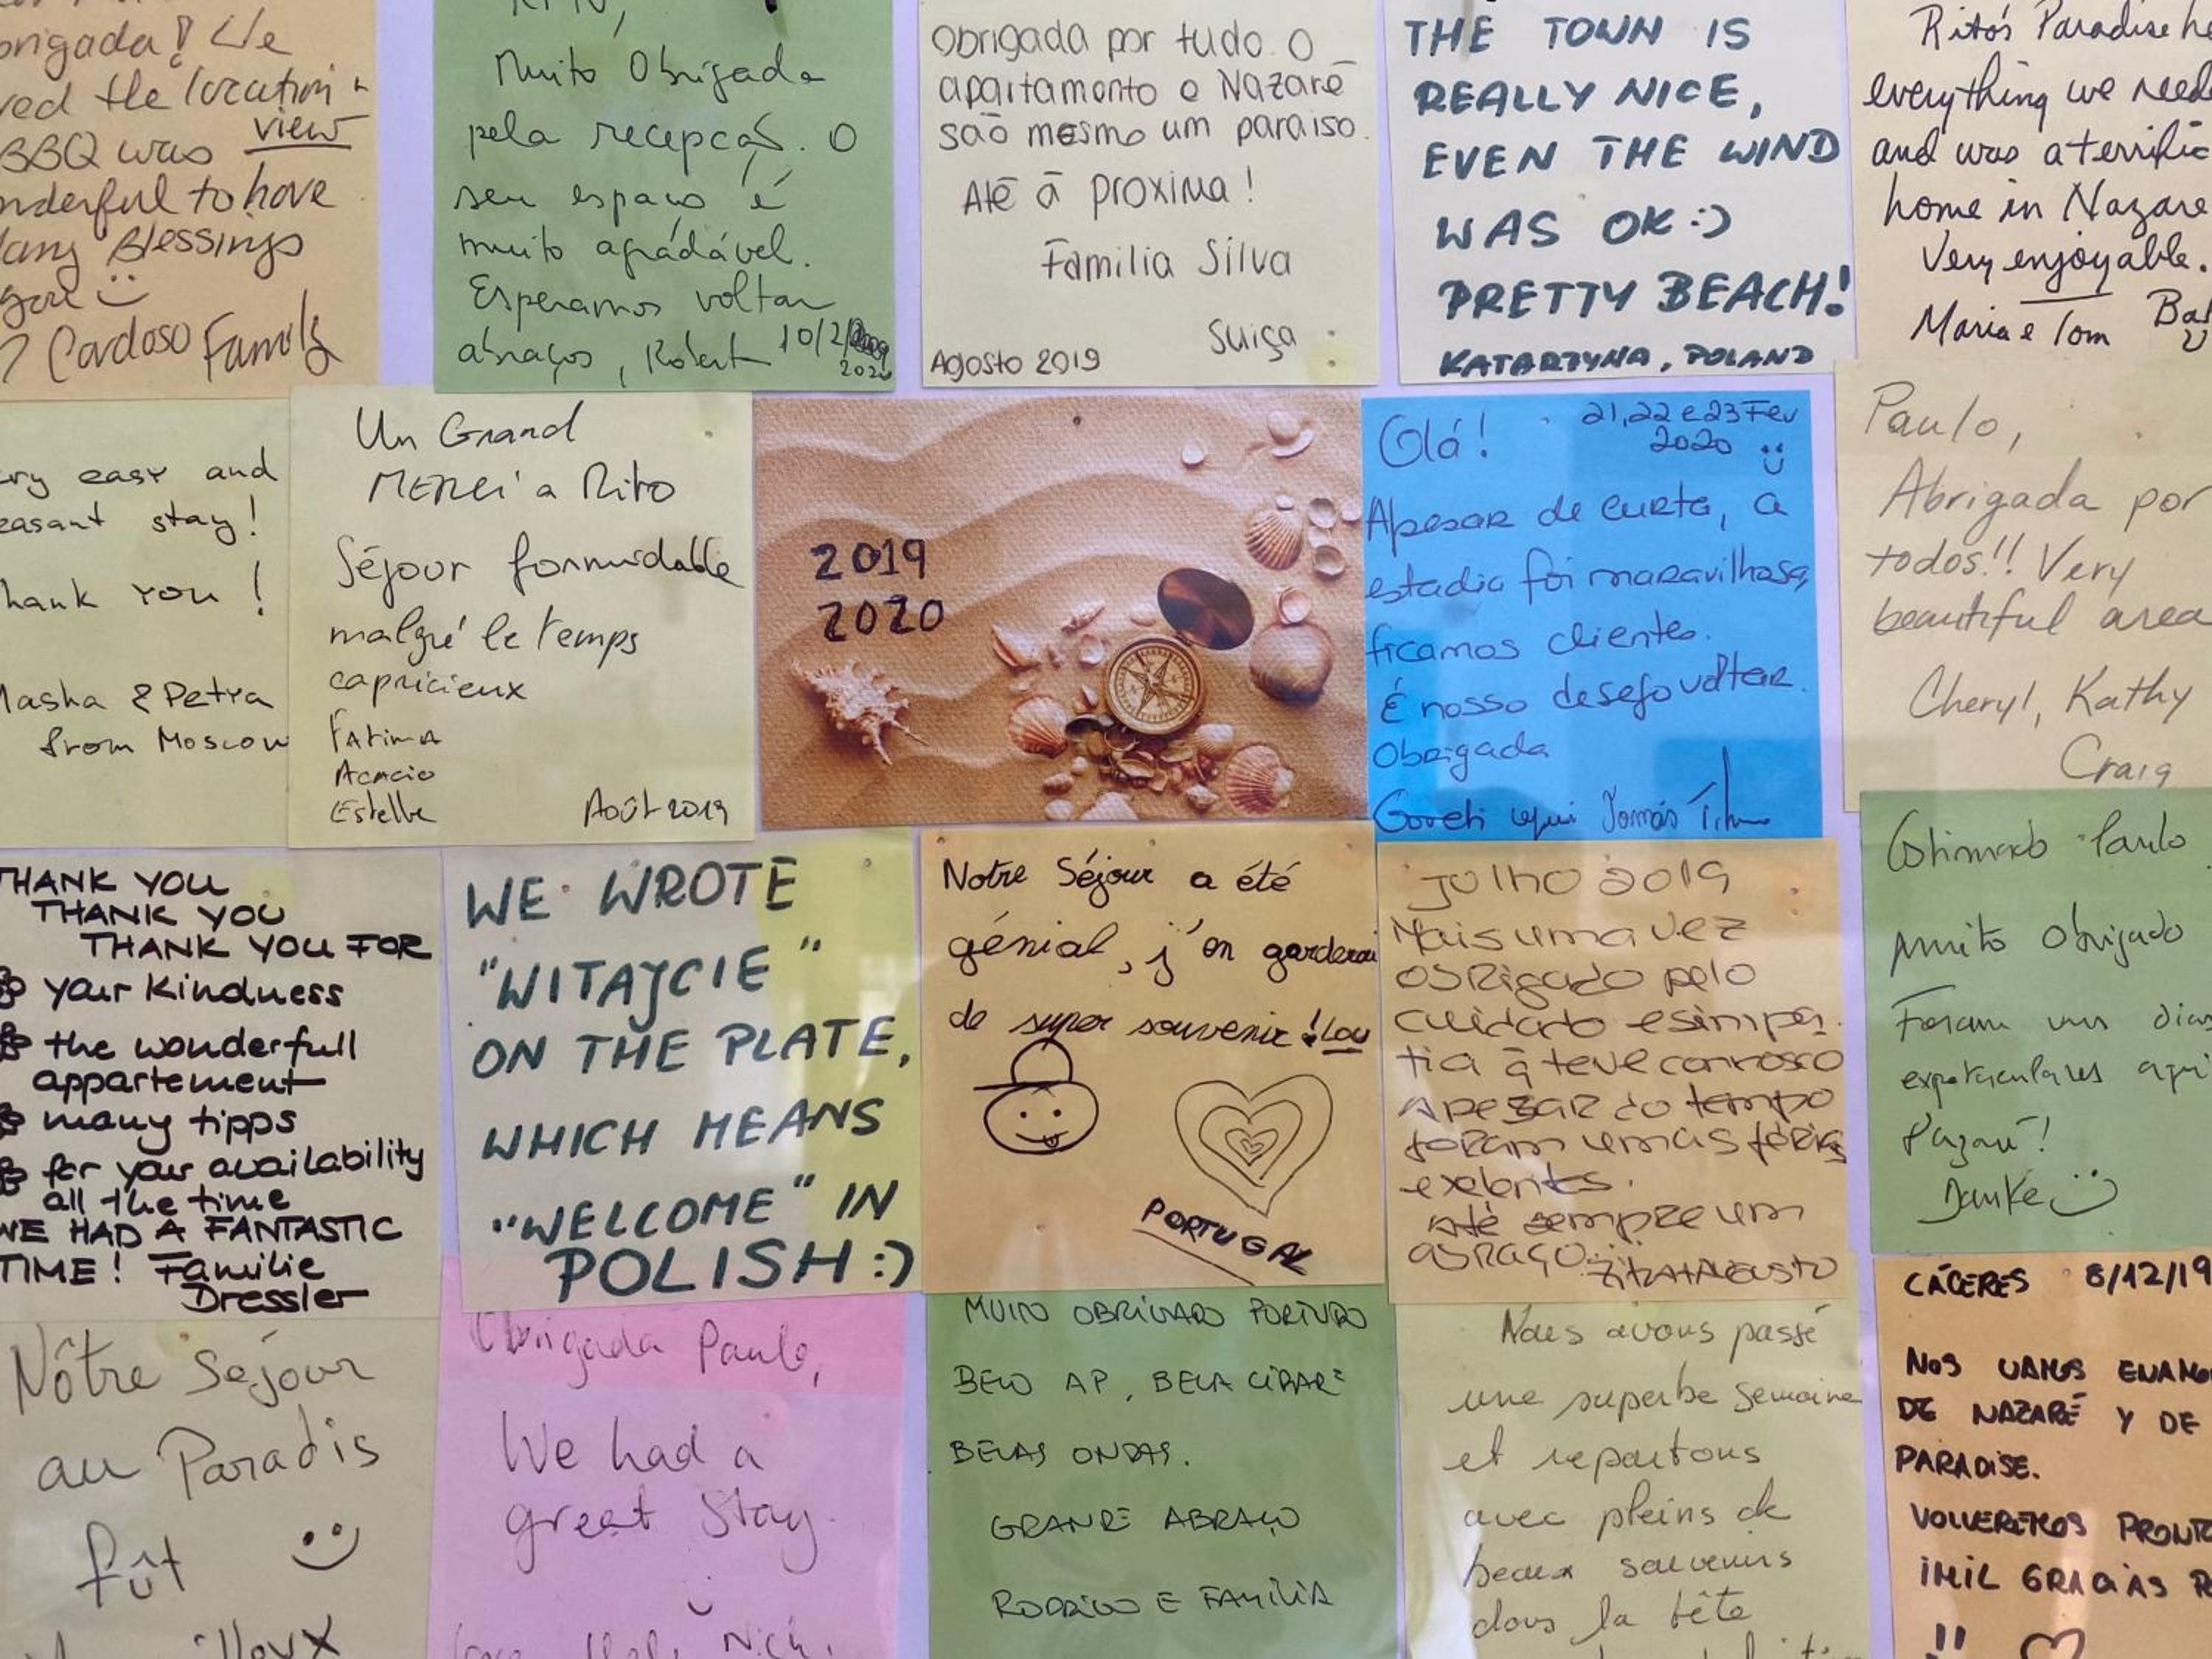 brigada! We
ved the location +
view
BBQ was
nderful to have
any Blessings
Cardoso Family
Muito Obrigada
pela recepção. O
seu espaço é
muito agradável.
Esperamos voltar
abraços, Robert 10/2/
2020
Obrigada por tudo. O
apartamento e Nazaré
são mesmo um paraiso.
Até á proxima!
Familia Silva
Suiça
Agosto 2019
THE TOWN IS
REALLY NICE,
EVEN THE WIND
WAS OK :)
PRETTY BEACH!
KATARZYNA, POLAND
Rito's Paradise h
everything we need
and was a terrific
home in Nazare
Very enjoyable.
Maria e Tom
ry easy and
easant stay!
hank you!
Masha & Petra
from Moscow
Un Grand
MERCI a Rito
Séjour formidable
malgré le temps
capricieux
Fatima
Acacio
Estelle
Août 2019
2019
2020
Olá! 21, 22 e 23 Fev
2020
Apesar de curta, a
estadia foi maravilhosa,
ficamos clientes.
É nosso desejo voltar.
Obrigada
Tomás
Paulo,
Abrigada por
todos!! Very
beautiful area
Cheryl, Kathy
Craig
THANK YOU
THANK YOU
THANK YOU FOR
your kindness
the wonderfull
appartement
many tipps
for your availability
all the time
WE HAD A FANTASTIC
TIME! Familie
Dressler
WE WROTE
"WITAJCIE"
ON THE PLATE,
WHICH MEANS
"WELCOME" IN
POLISH :)
Notre Séjour a été
génial, j'en garderai
de super souvenir ! Lou
PORTUGAL
Julho 2019
Mais uma vez
obrigado pelo
cuidado e simpa
tia q teve connosco
Apesar do tempo
foram umas férias
exelentes.
até sempre um
abraço
Estimado Paulo
Muito Obrigado
Foram uns dias
espetaculares aqui
Danke
Nôtre Séjour
au Paradis
fût
Obrigada Paulo,
We had a
great stay.
MUITO OBRIGADO POR TUDO
BELO AP, BELA CIDADE
BELAS ONDAS.
GRANDE ABRAÇO
RODRIGO E FAMÍLIA
Nous avons passé
une superbe semaine
et repartons
avec pleins de
beaux souvenirs
dans la tête
CÁCERES 8/12/19
NOS VAMOS ENAMO
DE NAZARÉ Y DE
PARADISE.
VOLVEREMOS PRONTO
¡MIL GRACIAS